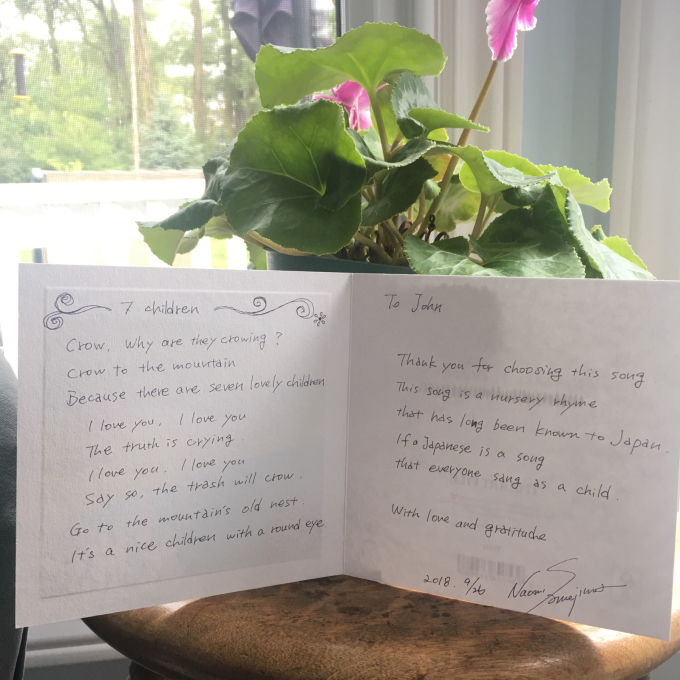 7 children
Crow, Why are they crowing?
Crow to the mountain
Because there are seven lovely children
I love you, I love you
The truth is crying.
I love you, I love you
Say so, the trash will crow.
Go to the mountain's old nest.
It's a nice children with a round eye.
To John
Thank you for choosing this song
This song is a nursery rhyme
that has long been known to Japan.
If a Japanese is a song
that everyone sang as a child.
With love and gratitude
2018. 9/26 Naomi